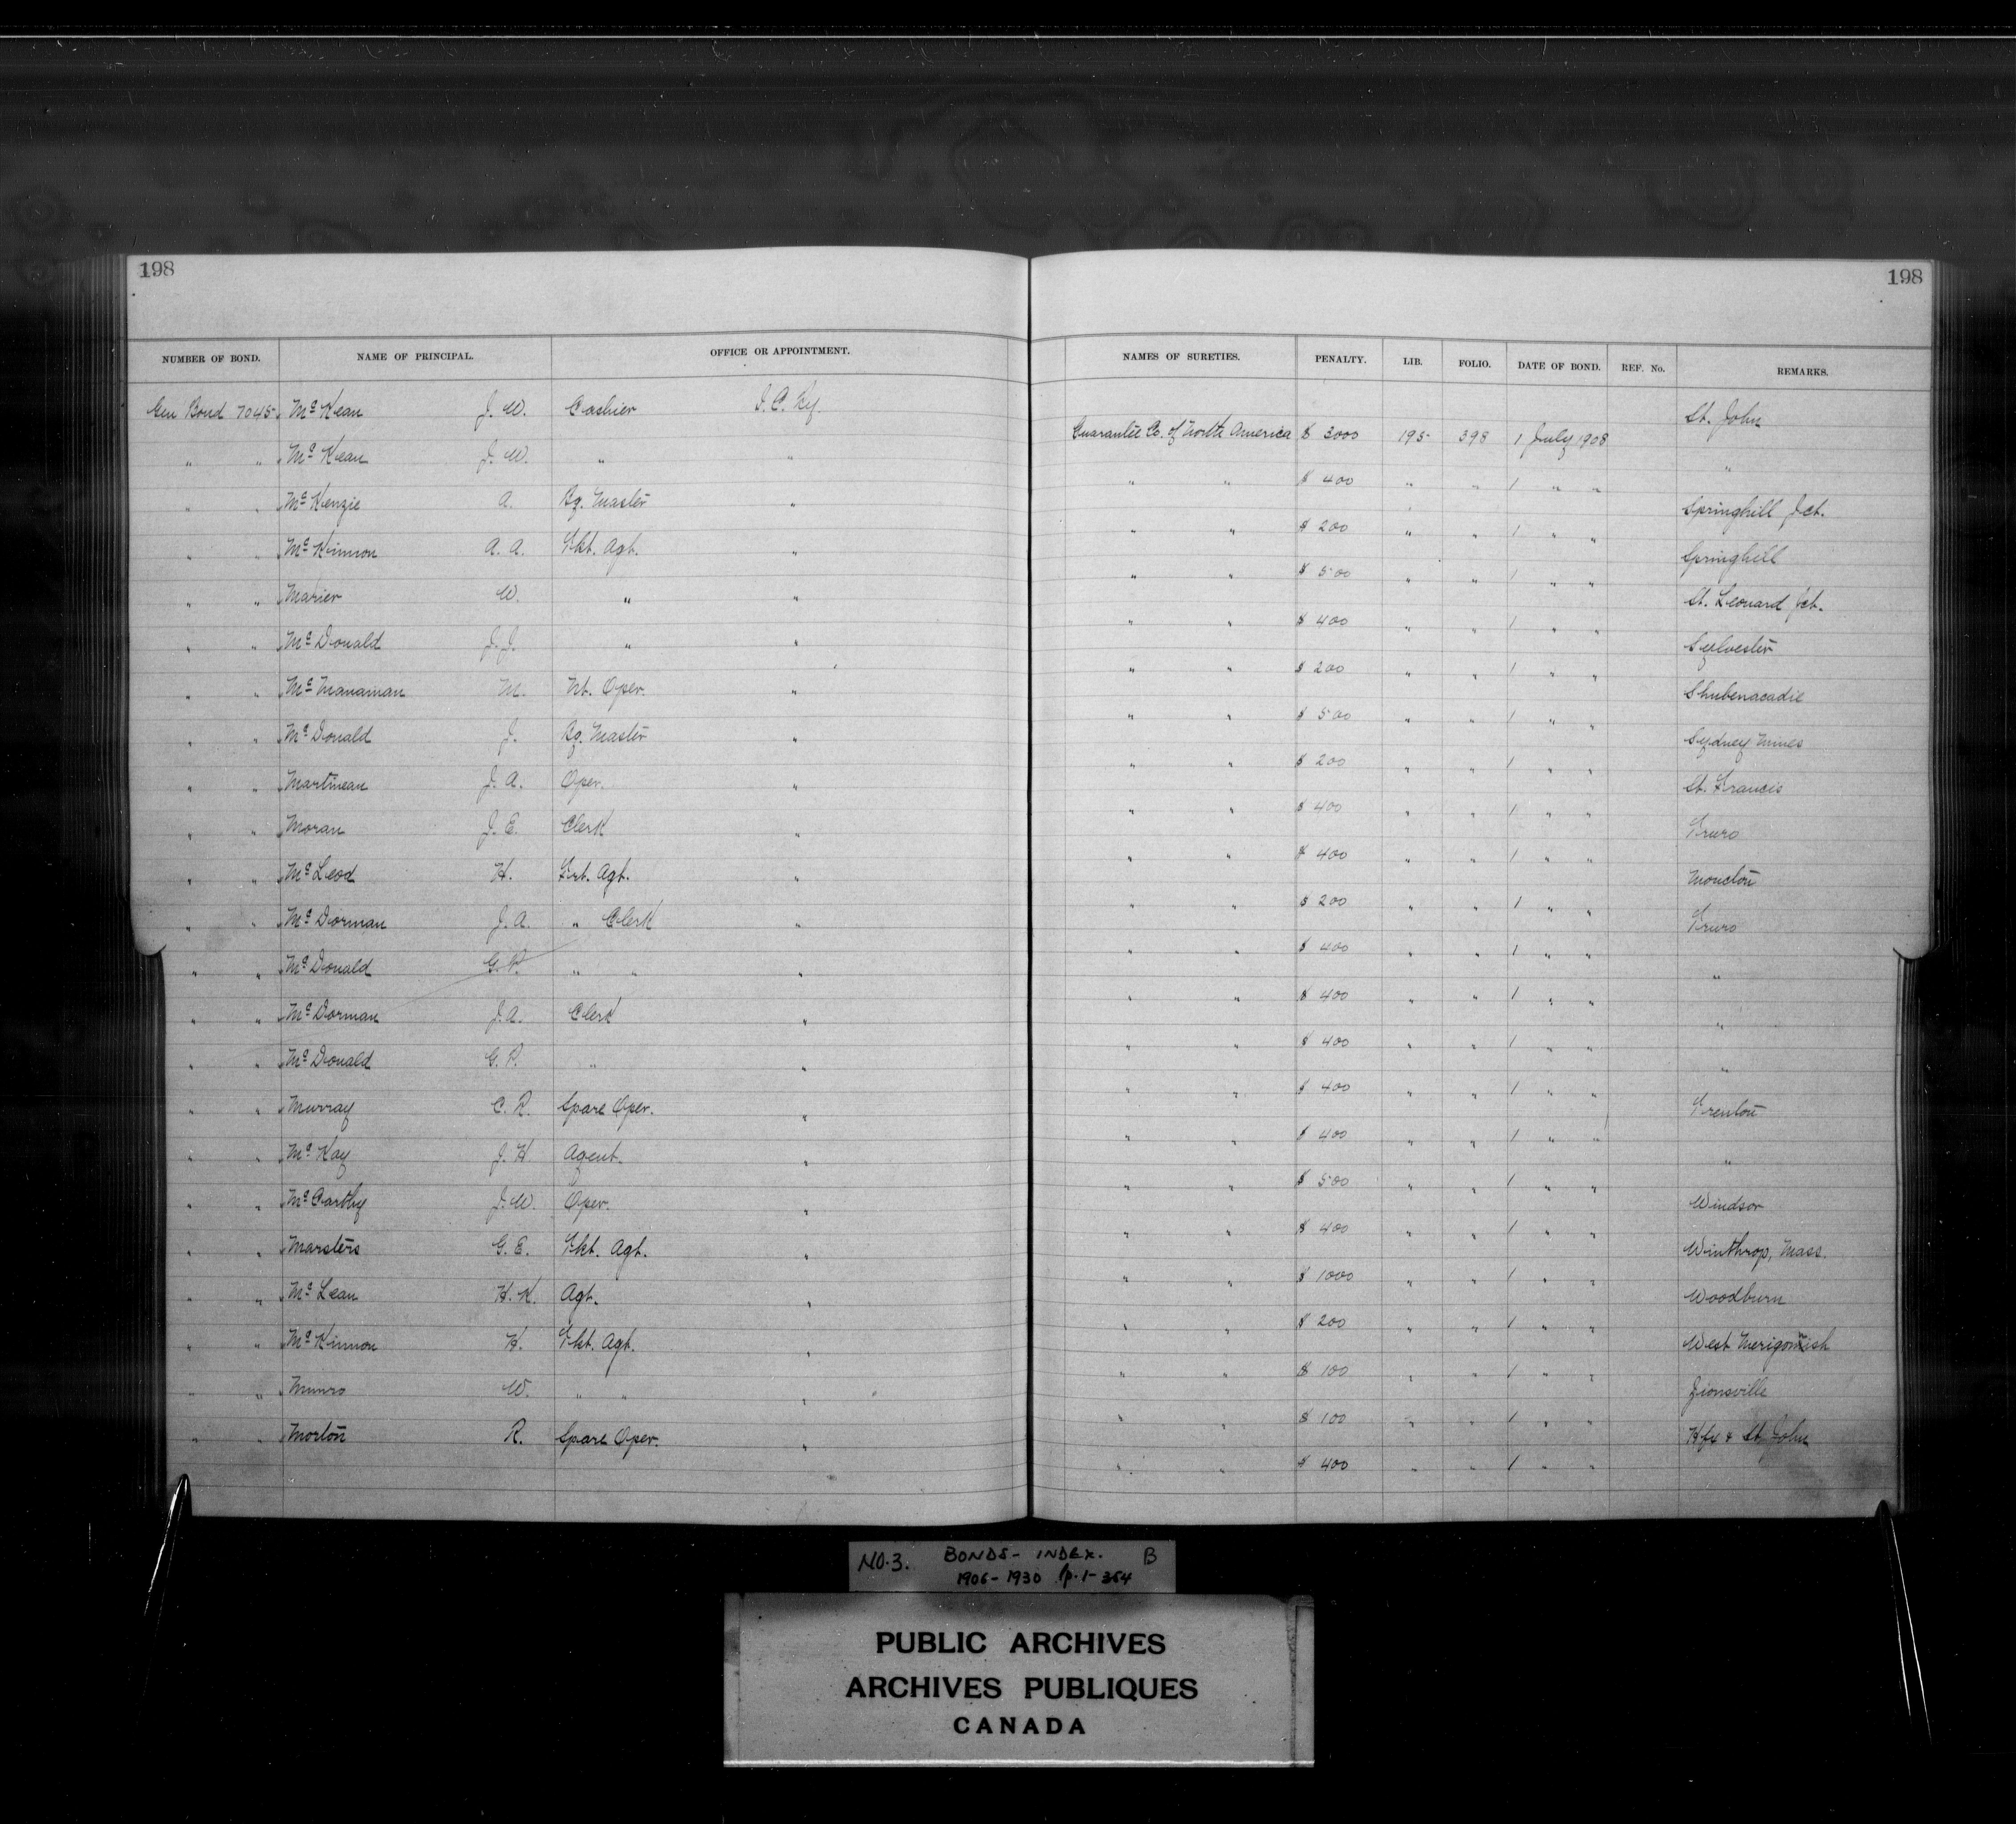 198
198
NUMBER OF BOND. NAME OF PRINCIPAL. OFFICE OR APPOINTMENT. NAMES OF SURETIES. PENALTY. LIB. FOLIO. DATE OF BOND. REF. No. REMARKS.
Gen Bond 7045 Mc Kean J. W. Cashier I. C. Ry. Guarantee Co. of North America $ 3000 195 398 1 July 1908 St. John
" " Mc Kean J. W. " " " " $ 400 " " 1 " " "
" " Mc Kenzie A. Bg. Master " " " $ 200 " " 1 " " Springhill Jct.
" " Mc Kinnon A. A. Tkt. Agt. " " " $ 500 " " 1 " " Springhill
" " Marier W. " " " " $ 400 " " 1 " " St. Leonard Jct.
" " Mc Donald J. J. " " " " $ 200 " " 1 " " Sylvester
" " Mc Manaman M. Nt. Oper. " " " $ 500 " " 1 " " Shubenacadie
" " Mc Donald J. Bg. Master " " " $ 200 " " 1 " " Sydney Mines
" " Martineau J. A. Oper. " " " $ 400 " " 1 " " St. Francis
" " Moran J. E. Clerk " " " $ 400 " " 1 " " Truro
" " Mc Leod H. Frt. Agt. " " " $ 200 " " 1 " " Moncton
" " Mc Dorman J. A. " Clerk " " " $ 400 " " 1 " " Truro
" " Mc Donald G. R. " " " " " $ 400 " " 1 " " "
" " Mc Dorman J. A. Clerk " " " $ 400 " " 1 " " "
" " Mc Donald G. R. " " " " $ 400 " " 1 " " "
" " Murray C. R. Spare Oper. " " " $ 400 " " 1 " " Trenton
" " Mc Kay J. H. Agent. " " " $ 500 " " 1 " " "
" " Mc Carthy J. W. Oper. " " " $ 400 " " 1 " " Windsor
" " Marsters G. E. Tkt. Agt. " " " $ 1000 " " 1 " " Winthrop, Mass.
" " Mc Lean H. K. Agt. " " " $ 200 " " 1 " " Woodburn
" " Mc Kinnon H. Tkt. Agt. " " " $ 100 " " 1 " " West Merigomish
" " Munro W. " " " " " $ 100 " " 1 " " Zionsville
" " Morton R. Spare Oper. " " " $ 400 " " 1 " " Hfx & St. John
NO. 3. BONDS - INDEX. B
1906 - 1930 p. 1 - 364
PUBLIC ARCHIVES
ARCHIVES PUBLIQUES
CANADA